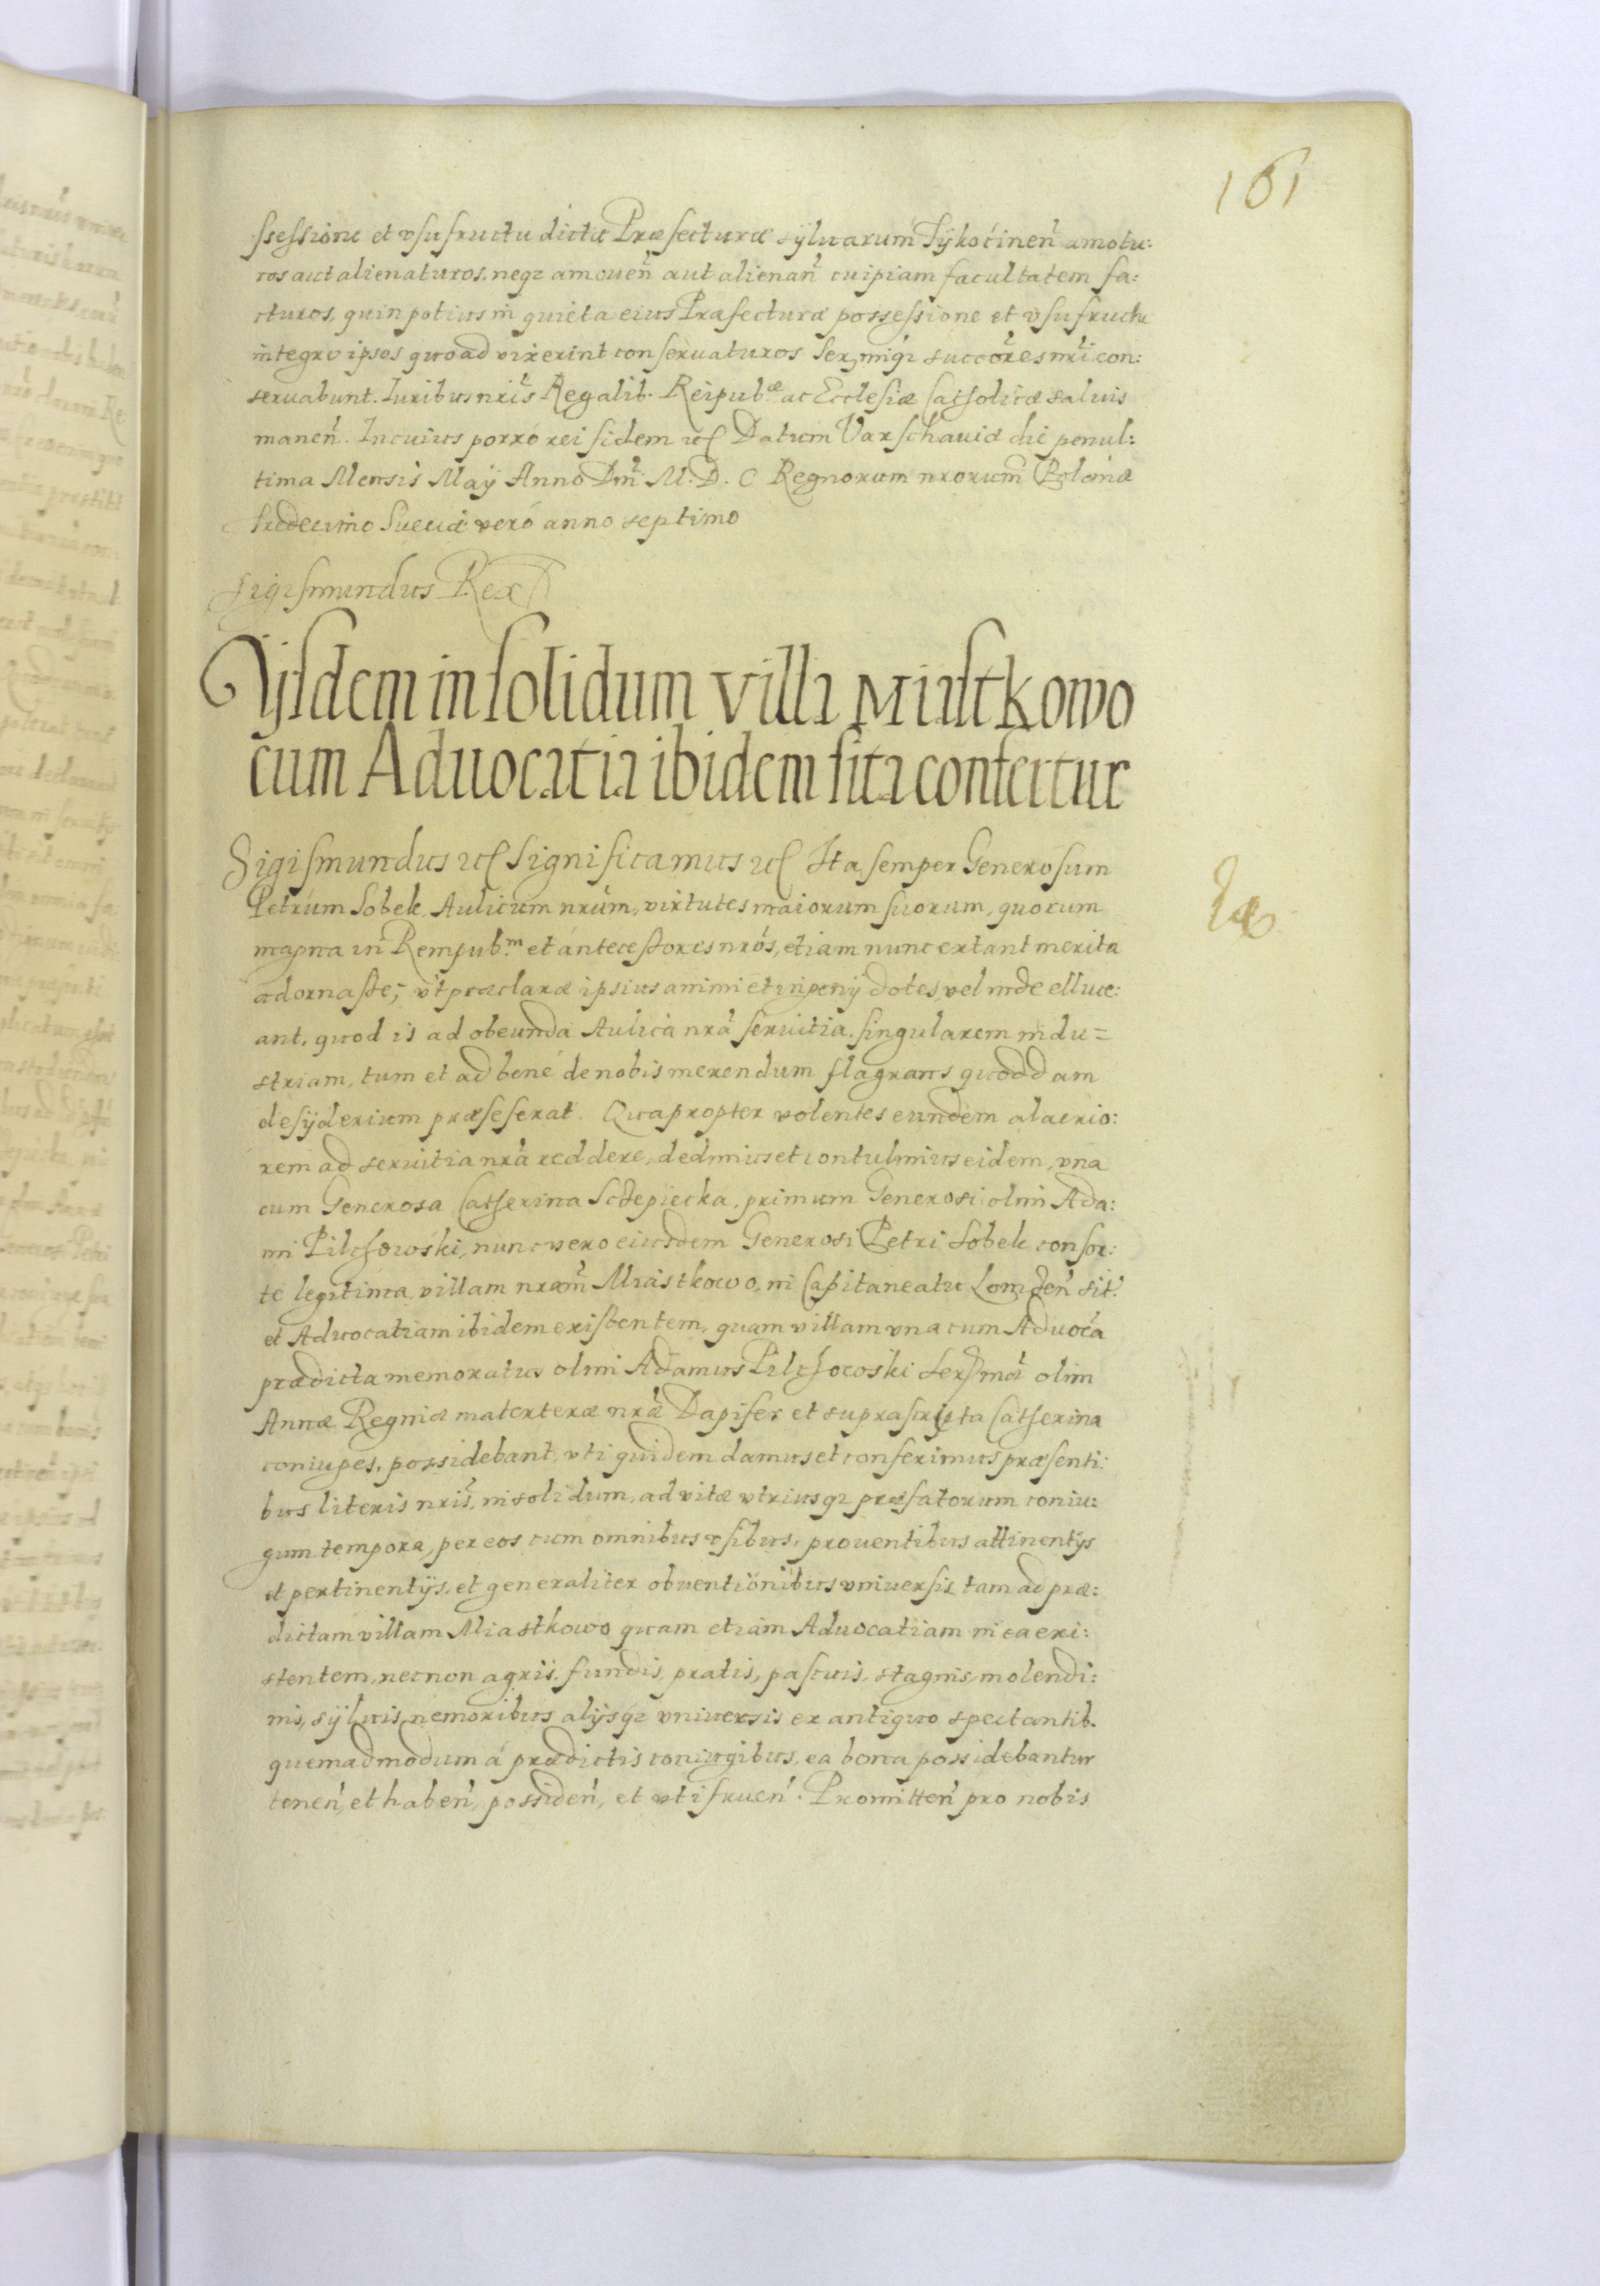 161
ssessione et vsufructu dictae Praefecturae syluarum Tykocinen̄ amotu:
ros aut alienaturos, neqz amouen̄ aut alienan̄ cuipiam facultatem fa:
cturos, quin potius in quieta eius Praefecturae possessione et vsufructu
integro ipsos quoad vixerint conseruaturos Ser, miqz succores nr̄i con:
seruabunt. Iuribus nris̄ Regalib. Reipub.ae ac Ecclesiae Catholicae saluis
manen̄. In cuius porró rei fidem etc Datum Varschauiae die penul:
tima Mensis Maÿ Anno Dnī M. D. C Regnorum nrorum Poloniae
tredecimo Sueciae veró anno septimo
Sigismundus Rex
Ijsdem in solidum villa Miastkowo
cum Aduocatia ibidem sita confertur
Sigismundus etc Significamus etc Ita semper Generosum
Petrum Sobek Aulicum nrum, virtutes maiorum suorum, quorum
magna in Rempub.m et antecessores nros, etiam nunc extant merita
adornasse, vt praeclarae ipsius animi et ingenij dotes, vel inde elluce:
ant, quod is ad obeunda Aulica nra seruitia, singularem indu=
striam, tum et ad bené de nobis merendum flagrans quoddam
desyderium praeseferat. Quapropter volentes eundem alacrio:
rem ad seruitia nra reddere, dedimus et contulimus eidem, vna
cum Generosa Catherina Sczepiecka, primum Generosi olim Ada:
mi Pilchowski, nunc vero eiusdem Generosi Petri Sobek consor:
te legitima, villam nram̄ Miastkowo, in Capitaneatu Lomzen̄ sit.
et Aduocatiam ibidem existentem, quam villam vna cum Aduoca
praedicta memoratus olim Adamus Pilchowski Ser, mae olim
Annae Reginae materterae nrae Dapifer et suprascripta Catherina
coniuges, possidebant, vti quidem damus et conferimus praesenti:
bus literis nris̄, in solidum, ad vitae vtriusqz praefatorum coniu:
gum tempora, per eos cum omnibus vsibus, prouentibus attinentijs
et pertinentijs, et generaliter obuentionibus vniuersis, tam ad prae:
dictam villam Miastkowo quam etiam Aduocatiam in ea exi:
stentem, necnon agris, fundis, pratis, pascuis, stagnis, molendi:
nis, syluis, nemoribus alijsqz vniuersis ex antiquo spectantib.
quemadmodum á praedictis coniugibus, ea bona possidebantur
tenen̄, et haben̄, possiden̄, et vtifruen̄. Promitten̄ pro nobis